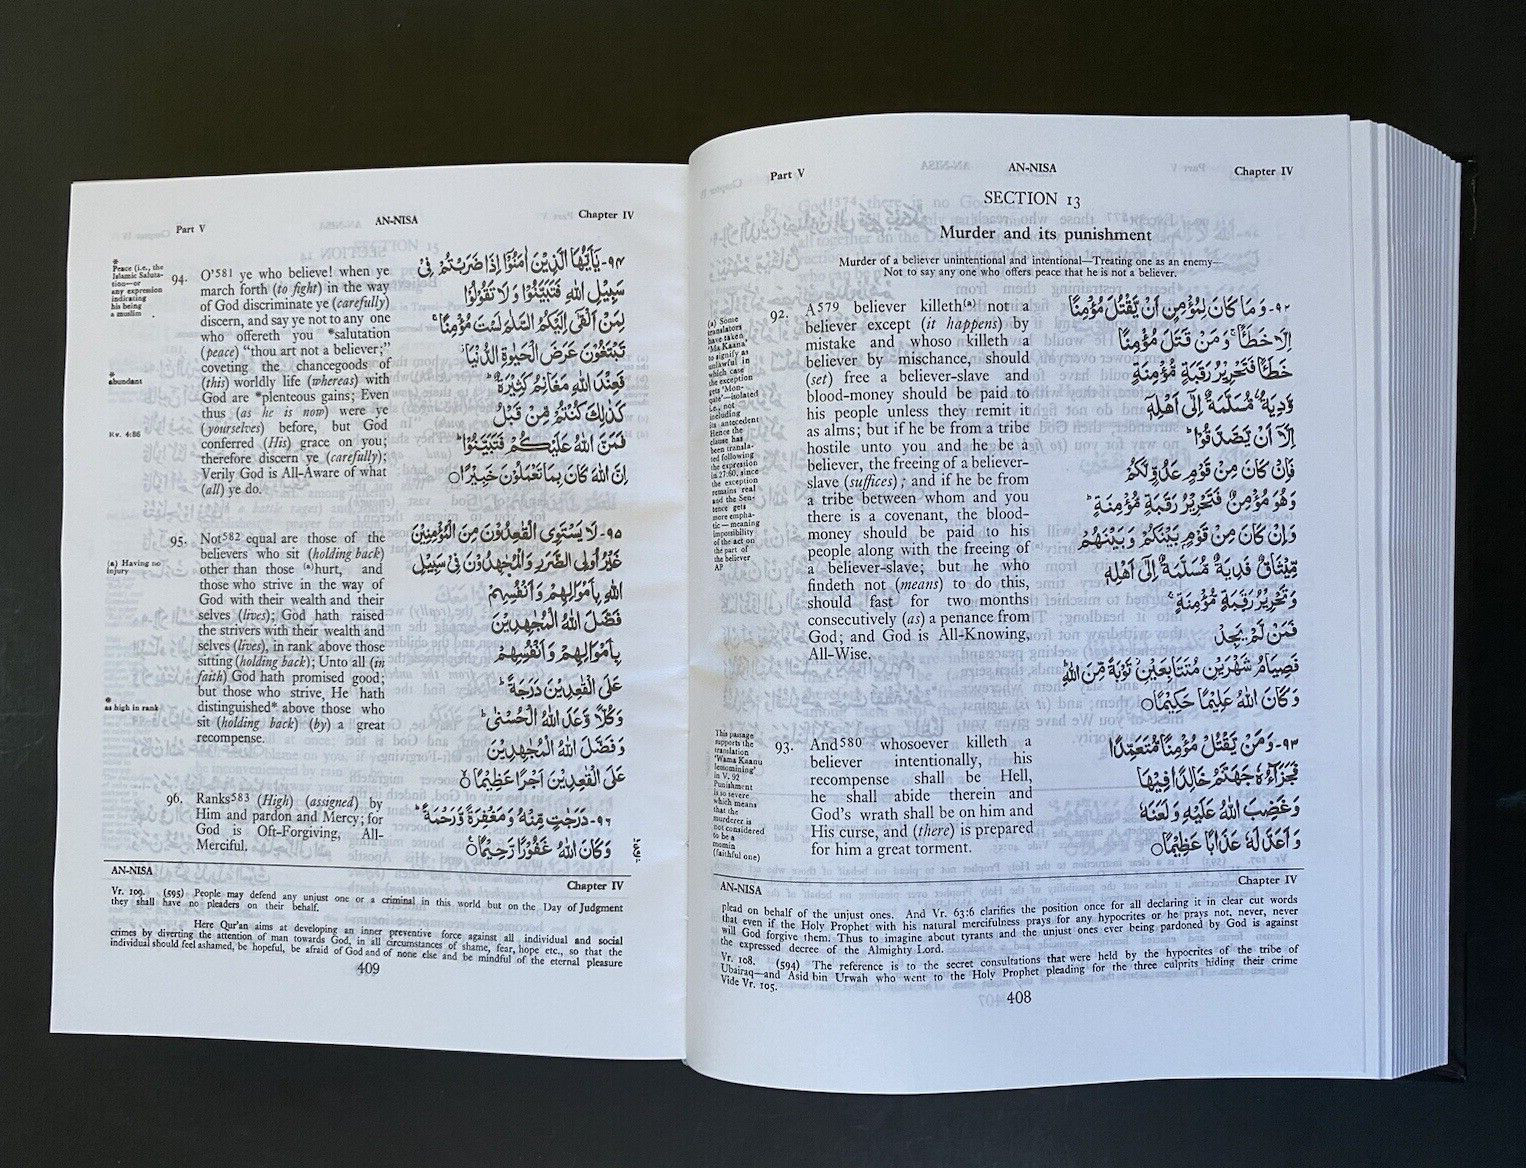 Part V
AN-NISA
Chapter IV
SECTION 13
Murder and its punishment
Murder of a believer unintentional and intentional—Treating one as an enemy—
Not to say any one who offers peace that he is not a believer.
(a) Some
translators
have taken
'Ma Kaana'
to signify as
unlawful in
which case
the exception
gets 'Mon-
qate'—isolated
i.e., not
including
its antecedent
Hence the
clause has
been transla-
ted following
the expression
in 27:60, since
the exception
remains real
and the Sen-
tence gets
more empha-
tic—meaning
impossibility
of the act on
the part of
the believer
AP
92. A579 believer killeth(a) not a
believer except (it happens) by
mistake and whoso killeth a
believer by mischance, should
(set) free a believer-slave and
blood-money should be paid to
his people unless they remit it
as alms; but if he be from a tribe
hostile unto you and he be a
believer, the freeing of a believer-
slave (suffices); and if he be from
a tribe between whom and you
there is a covenant, the blood-
money should be paid to his
people along with the freeing of
a believer-slave; but he who
findeth not (means) to do this,
should fast for two months
consecutively (as) a penance from
God; and God is All-Knowing,
All-Wise.
۹۲- وَمَا كَانَ لِمُؤْمِنٍ أَنْ يَّقْتُلَ مُؤْمِنًا
اِلَّا خَطَأً ۚ وَمَنْ قَتَلَ مُؤْمِنًا
خَطَأً فَتَحْرِيْرُ رَقَبَةٍ مُّؤْمِنَةٍ
وَّدِيَةٌ مُّسَلَّمَةٌ اِلٰٓى اَهْلِهٖٓ
اِلَّآ اَنْ يَّصَّدَّقُوْا ؕ
فَاِنْ كَانَ مِنْ قَوْمٍ عَدُوٍّ لَّكُمْ
وَهُوَ مُؤْمِنٌ فَتَحْرِيْرُ رَقَبَةٍ مُّؤْمِنَةٍ ؕ
وَاِنْ كَانَ مِنْ قَوْمٍۭ بَيْنَكُمْ وَبَيْنَهُمْ
مِّيْثَاقٌ فَدِيَةٌ مُّسَلَّمَةٌ اِلٰٓى اَهْلِهٖ
وَتَحْرِيْرُ رَقَبَةٍ مُّؤْمِنَةٍ ۚ
فَمَنْ لَّمْ يَجِدْ
فَصِيَامُ شَهْرَيْنِ مُتَتَابِعَيْنِ ۡ تَوْبَةً مِّنَ اللّٰهِ ؕ
وَكَانَ اللّٰهُ عَلِيْمًا حَكِيْمًا ○
This passage
supports the
translation
'Wama Kaanu
lemomining'
in V. 92
Punishment
is so severe
which means
that the
murderer is
not considered
to be a
momin
(faithful one)
93. And580 whosoever killeth a
believer intentionally, his
recompense shall be Hell,
he shall abide therein and
God's wrath shall be on him and
His curse, and (there) is prepared
for him a great torment.
۹۳- وَمَنْ يَّقْتُلْ مُؤْمِنًا مُّتَعَمِّدًا
فَجَزَآؤُهٗ جَهَنَّمُ خَالِدًا فِيْهَا
وَغَضِبَ اللّٰهُ عَلَيْهِ وَلَعَنَهٗ
وَاَعَدَّ لَهٗ عَذَابًا عَظِيْمًا ○
AN-NISA
Chapter IV
plead on behalf of the unjust ones. And Vr. 63:6 clarifies the position once for all declaring it in clear cut words
that even if the Holy Prophet with his natural mercifulness prays for any hypocrites or he prays not, never, never
will God forgive them. Thus to imagine about tyrants and the unjust ones ever being pardoned by God is against
the expressed decree of the Almighty Lord.
Vr. 108. (594) The reference is to the secret consultations that were held by the hypocrites of the tribe of
Ubairaq—and Asid bin Urwah who went to the Holy Prophet pleading for the three culprits hiding their crime
Vide Vr. 105.
408
Part V
AN-NISA
Chapter IV
*
Peace (i.e., the
Islamic Saluta-
tion—or
any expression
indicating
his being
a muslim
*
abundant
Rv. 4:86
94. O'581 ye who believe! when ye
march forth (to fight) in the way
of God discriminate ye (carefully)
discern, and say ye not to any one
who offereth you *salutation
(peace) "thou art not a believer;"
coveting the chancegoods of
(this) worldly life (whereas) with
God are *plenteous gains; Even
thus (as he is now) were ye
(yourselves) before, but God
conferred (His) grace on you;
therefore discern ye (carefully);
Verily God is All-Aware of what
(all) ye do.
۹۴- يٰٓاَيُّهَا الَّذِيْنَ اٰمَنُوْٓا اِذَا ضَرَبْتُمْ فِيْ
سَبِيْلِ اللّٰهِ فَتَبَيَّنُوْا وَلَا تَقُوْلُوْا
لِمَنْ اَلْقٰٓى اِلَيْكُمُ السَّلٰمَ لَسْتَ مُؤْمِنًا ۚ
تَبْتَغُوْنَ عَرَضَ الْحَيٰوةِ الدُّنْيَا ۡ
فَعِنْدَ اللّٰهِ مَغَانِمُ كَثِيْرَةٌ ؕ
كَذٰلِكَ كُنْتُمْ مِّنْ قَبْلُ
فَمَنَّ اللّٰهُ عَلَيْكُمْ فَتَبَيَّنُوْا ؕ
اِنَّ اللّٰهَ كَانَ بِمَا تَعْمَلُوْنَ خَبِيْرًا ○
(a) Having no
injury
*
as high in rank
95. Not582 equal are those of the
believers who sit (holding back)
other than those (a)hurt, and
those who strive in the way of
God with their wealth and their
selves (lives); God hath raised
the strivers with their wealth and
selves (lives), in rank above those
sitting (holding back); Unto all (in
faith) God hath promised good;
but those who strive, He hath
distinguished* above those who
sit (holding back) (by) a great
recompense.
۹۵- لَا يَسْتَوِي الْقٰعِدُوْنَ مِنَ الْمُؤْمِنِيْنَ
غَيْرُ اُولِي الضَّرَرِ وَالْمُجٰهِدُوْنَ فِيْ سَبِيْلِ
اللّٰهِ بِاَمْوَالِهِمْ وَاَنْفُسِهِمْ
فَضَّلَ اللّٰهُ الْمُجٰهِدِيْنَ
بِاَمْوَالِهِمْ وَاَنْفُسِهِمْ
عَلَى الْقٰعِدِيْنَ دَرَجَةً ؕ
وَكُلًّا وَّعَدَ اللّٰهُ الْحُسْنٰى ؕ
وَفَضَّلَ اللّٰهُ الْمُجٰهِدِيْنَ
عَلَى الْقٰعِدِيْنَ اَجْرًا عَظِيْمًا ○
96. Ranks583 (High) (assigned) by
Him and pardon and Mercy; for
God is Oft-Forgiving, All-
Merciful.
۹۶- دَرَجٰتٍ مِّنْهُ وَمَغْفِرَةً وَّرَحْمَةً ؕ
وَكَانَ اللّٰهُ غَفُوْرًا رَّحِيْمًا ○
AN-NISA
Chapter IV
Vr. 109. (595) People may defend any unjust one or a criminal in this world but on the Day of Judgment
they shall have no pleaders on their behalf.
Here Qur'an aims at developing an inner preventive force against all individual and social
crimes by diverting the attention of man towards God, in all circumstances of shame, fear, hope etc., so that the
individual should feel ashamed, be hopeful, be afraid of God and of none else and be mindful of the eternal pleasure
409